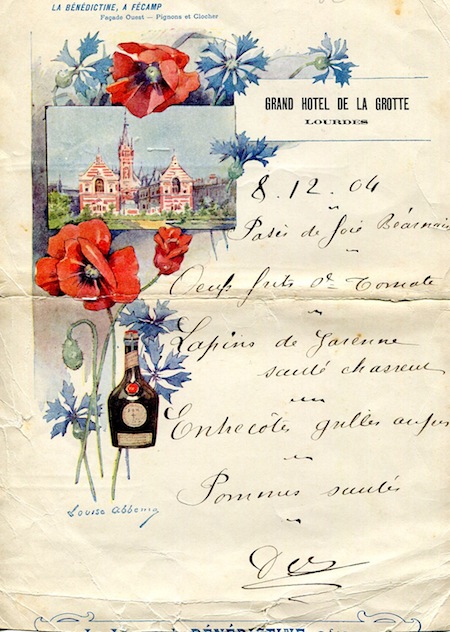 LA BÉNÉDICTINE, A FÉCAMP
Façade Ouest — Pignons et Clocher
GRAND HOTEL DE LA GROTTE
LOURDES
8.12.04
Patés de foie Béarnais
Oeufs frits Ste Tomate
Lapins de Garenne
sauté chasseur
Entrecôtes grillés au jus
Pommes sautés
Louise Abbema
BÉNÉDICTINE